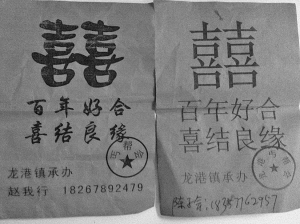 囍
百年好合
喜结良缘
龙港镇承办
赵我行 18267892479
囍
百年好合
喜结良缘
龙港镇承办